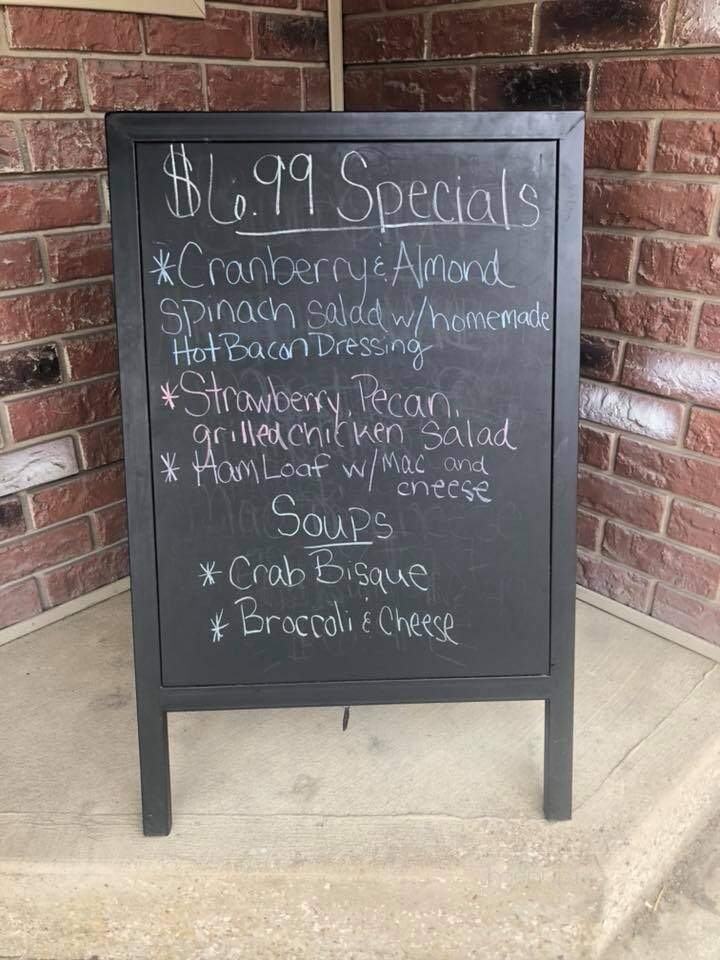 $6.99 Specials
*Cranberry & Almond
Spinach Salad w/homemade
Hot Bacon Dressing
*Strawberry, Pecan,
grilled chicken Salad
* Ham Loaf w/ Mac and
cheese
Soups
* Crab Bisque
* Broccoli & Cheese